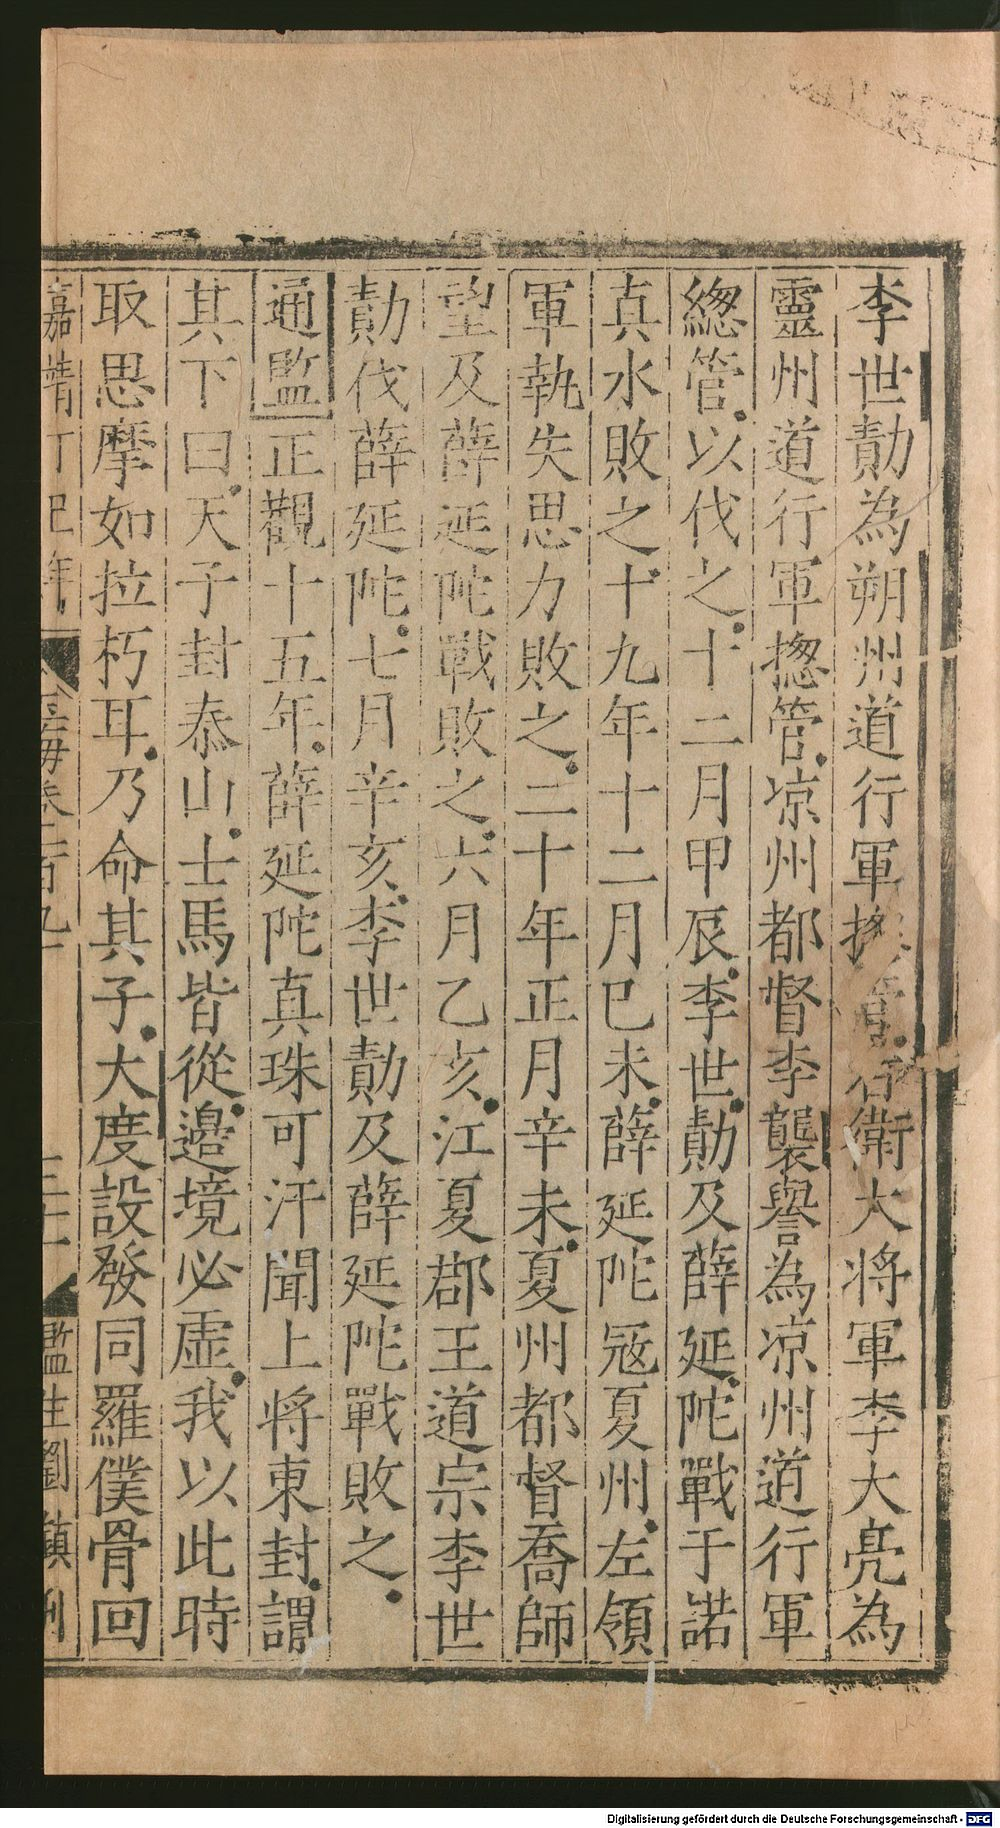 李世勣為朔州道行軍揔管右衛大将軍李大亮為
靈州道行軍揔管凉州都督李襲譽為凉州道行軍
緫管以伐之十二月甲辰李世勣及薛延陀戰于諾
真水敗之十九年十二月已未薛延陀冦夏州左領
軍執失思力敗之二十年正月辛未夏州都督喬師
望及薛延陀戰敗之六月乙亥江夏郡王道宗李世
勣伐薛延陀七月辛亥李世勣及薛延陀戰敗之
通監正觀十五年薛延陀真珠可汗聞上将東封謂
其下曰天子封泰山士馬皆從邉境必虚我以此時
取思摩如拉朽耳乃命其子大度設發同羅僕骨回
嘉靖丁巳年 玉海卷一百九十 三十一 監生劉 刊
Digitalisierung gefördert durch die Deutsche Forschungsgemeinschaft - DFG